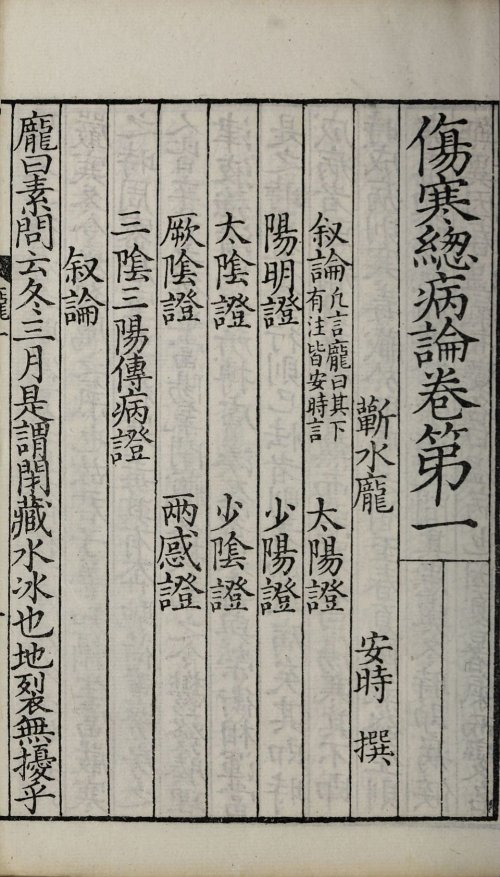 傷寒總病論卷第一
蘄水龐 安時 撰
叙論 凡言龐曰其下有注皆安時言 太陽證
陽明證 少陽證
太陰證 少陰證
厥陰證 兩感證
三陰三陽傳病證
叙論
龐曰素問云冬三月是謂閉藏水冰也地裂無擾乎